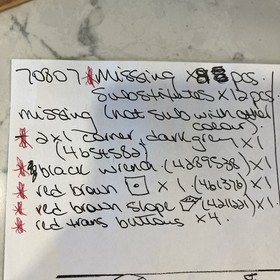 70807 Missing x 8 pcs.
substitutes x 12 pcs
missing (not sub with other
colour)
- 2x1 corner, dark grey x 1
(4654582)
black wrench (4289538) x 1
red brown x 1 (461376)
red brown slope (4211221) x 1
red trans buttons x 4.